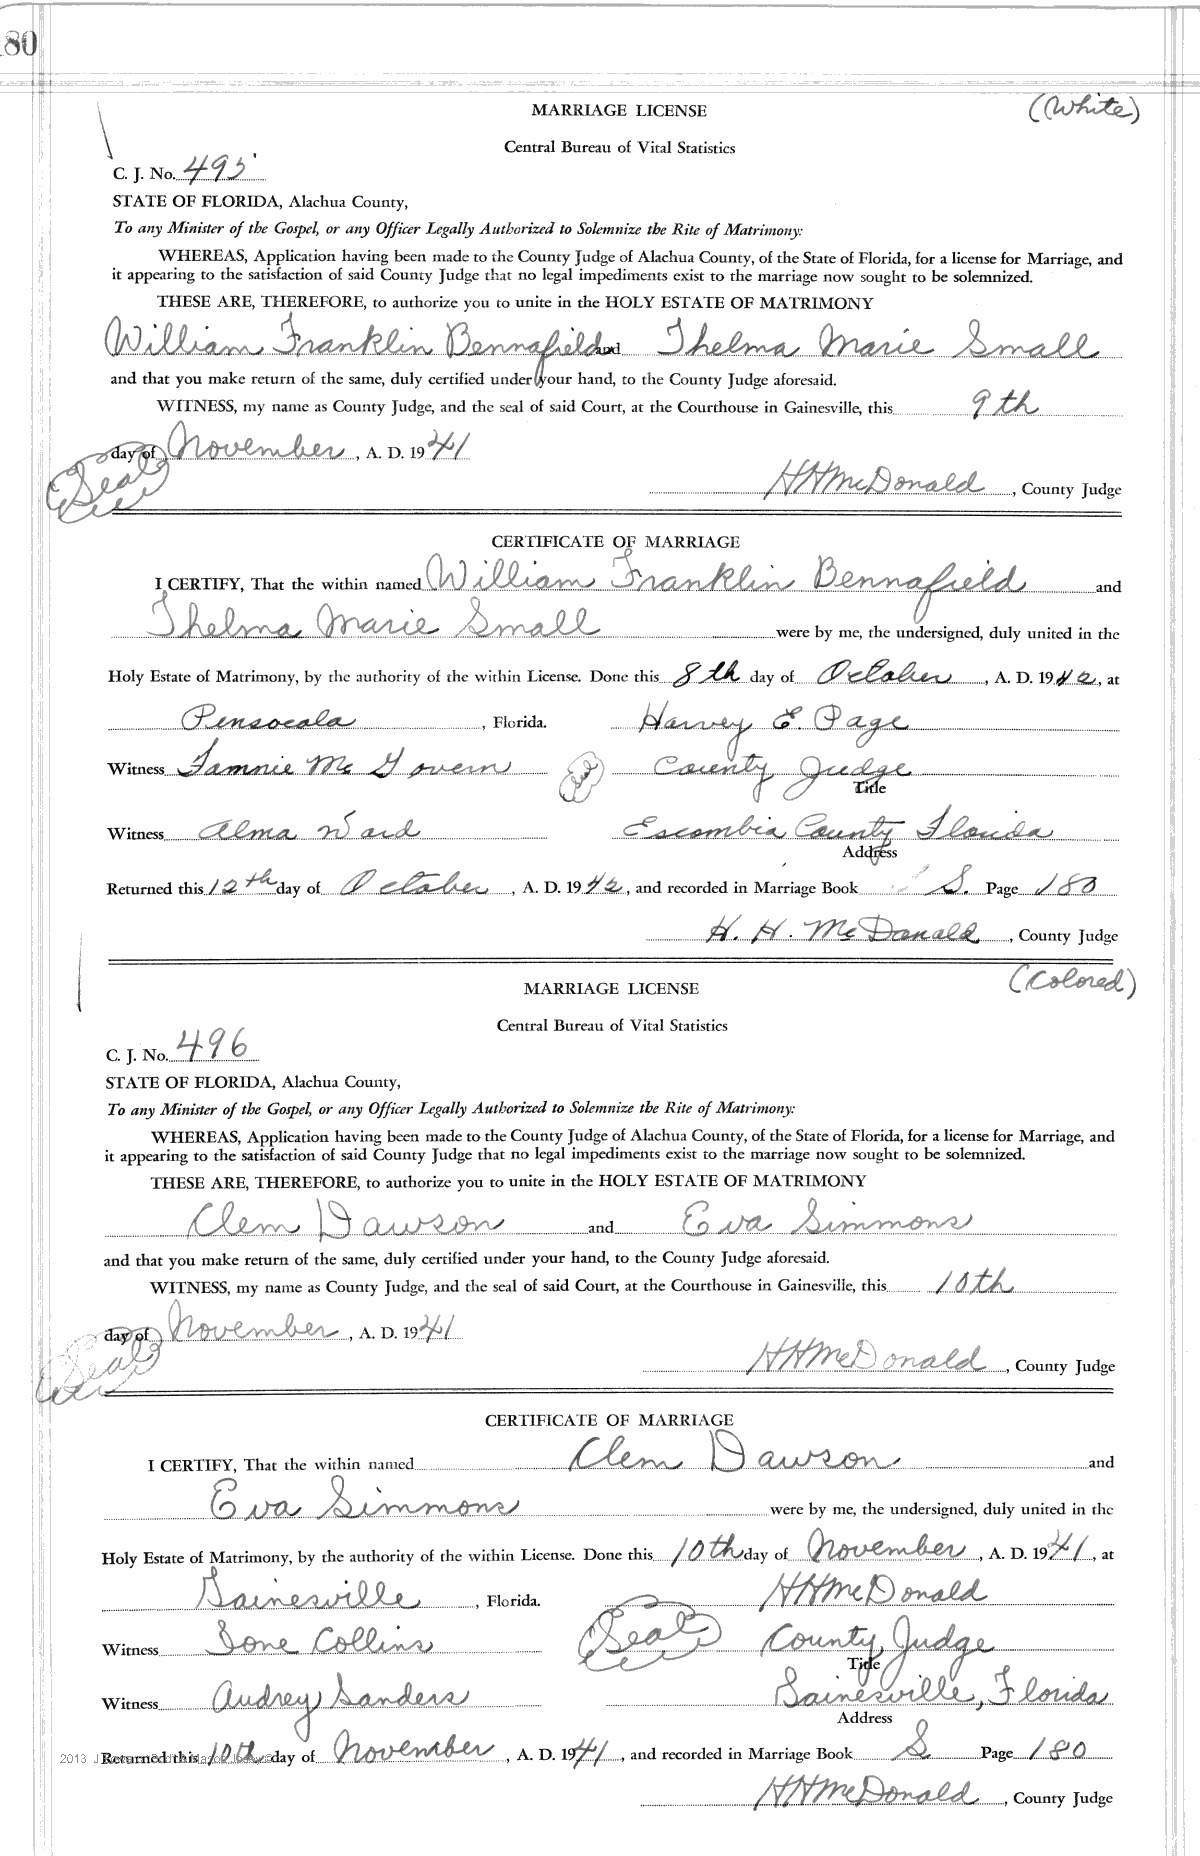 180
MARRIAGE LICENSE (White)
Central Bureau of Vital Statistics
C. J. No. 495
STATE OF FLORIDA, Alachua County,
To any Minister of the Gospel, or any Officer Legally Authorized to Solemnize the Rite of Matrimony:
WHEREAS, Application having been made to the County Judge of Alachua County, of the State of Florida, for a license for Marriage, and
it appearing to the satisfaction of said County Judge that no legal impediments exist to the marriage now sought to be solemnized.
THESE ARE, THEREFORE, to authorize you to unite in the HOLY ESTATE OF MATRIMONY
William Franklin Bennafield and Thelma Marie Small
and that you make return of the same, duly certified under your hand, to the County Judge aforesaid.
WITNESS, my name as County Judge, and the seal of said Court, at the Courthouse in Gainesville, this 9th
day of November, A. D. 1941
Seal
HHMcDonald, County Judge
CERTIFICATE OF MARRIAGE
I CERTIFY, That the within named William Franklin Bennafield and
Thelma Marie Small were by me, the undersigned, duly united in the
Holy Estate of Matrimony, by the authority of the within License. Done this 8th day of October, A. D. 1942, at
Pensocala, Florida. Harvey E. Page
Witness Fannie Mc Govern Seal County Judge
Title
Witness Alma Ward Escambia County Florida
Address
Returned this 12th day of October, A. D. 1942, and recorded in Marriage Book S. Page 180
H. H. McDonald, County Judge
MARRIAGE LICENSE (Colored)
Central Bureau of Vital Statistics
C. J. No. 496
STATE OF FLORIDA, Alachua County,
To any Minister of the Gospel, or any Officer Legally Authorized to Solemnize the Rite of Matrimony:
WHEREAS, Application having been made to the County Judge of Alachua County, of the State of Florida, for a license for Marriage, and
it appearing to the satisfaction of said County Judge that no legal impediments exist to the marriage now sought to be solemnized.
THESE ARE, THEREFORE, to authorize you to unite in the HOLY ESTATE OF MATRIMONY
Clem Dawson and Eva Simmons
and that you make return of the same, duly certified under your hand, to the County Judge aforesaid.
WITNESS, my name as County Judge, and the seal of said Court, at the Courthouse in Gainesville, this 10th
day of November, A. D. 1941
Seal
HHMcDonald, County Judge
CERTIFICATE OF MARRIAGE
I CERTIFY, That the within named Clem Dawson and
Eva Simmons were by me, the undersigned, duly united in the
Holy Estate of Matrimony, by the authority of the within License. Done this 10th day of November, A. D. 1941, at
Gainesville, Florida. HHMcDonald
Witness Ione Collins Seal County Judge
Title
Witness Audrey Sanders Gainesville, Florida
Address
2013
Returned this 10th day of November, A. D. 1941, and recorded in Marriage Book S Page 180
HHMcDonald, County Judge